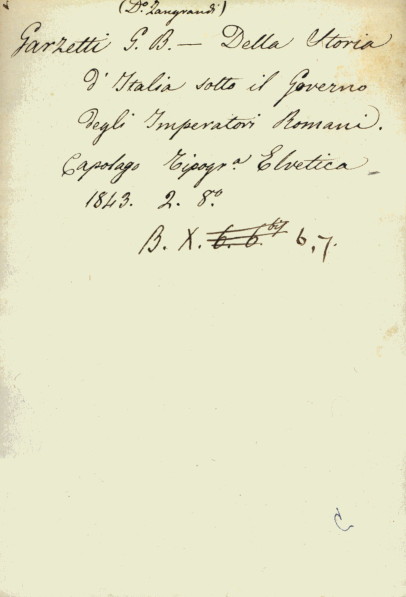 (D.º Zangrandi)
Garzetti G. B. — Della Storia
d'Italia sotto il Governo
degli Imperatori Romani.
Capolago Tipogr.ª Elvetica
1843. 2. 8.º
B. X. 6. 6.bis 6,7.